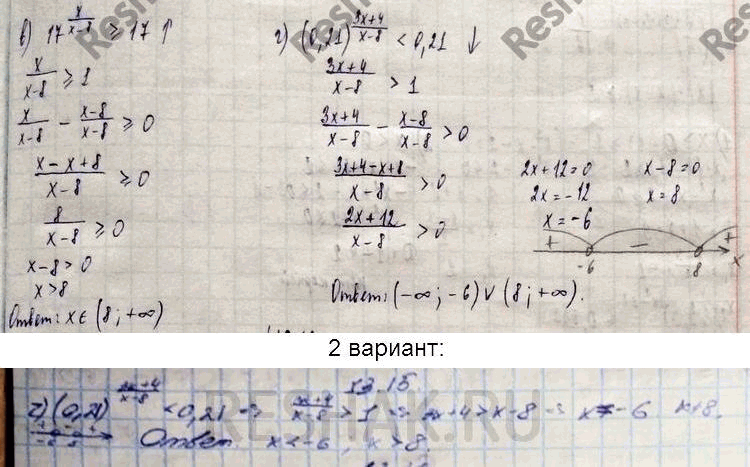 в) 17^(x/(x-8)) ≥ 17 ↑
x/(x-8) ≥ 1
x/(x-8) - (x-8)/(x-8) ≥ 0
(x-x+8)/(x-8) ≥ 0
8/(x-8) ≥ 0
x-8>0
x>8
Ответ: x∈(8;+∞)
г) (0,21)^((3x+4)/(x-8)) < 0,21 ↓
(3x+4)/(x-8) > 1
(3x+4)/(x-8) - (x-8)/(x-8) > 0
(3x+4-x+8)/(x-8) > 0
(2x+12)/(x-8) > 0
2x+12=0
2x=-12
x=-6
x-8=0
x=8
+ - +
-6 8 x
Ответ: (-∞;-6)∨(8;+∞).
2 вариант:
г) (0,21)^((3x+4)/(x-8)) < 0,21 ⇒ (3x+4)/(x-8) > 1 ⇒ 3x+4>x-8
Ответ: x<-6, x>8
RESHAK.RU